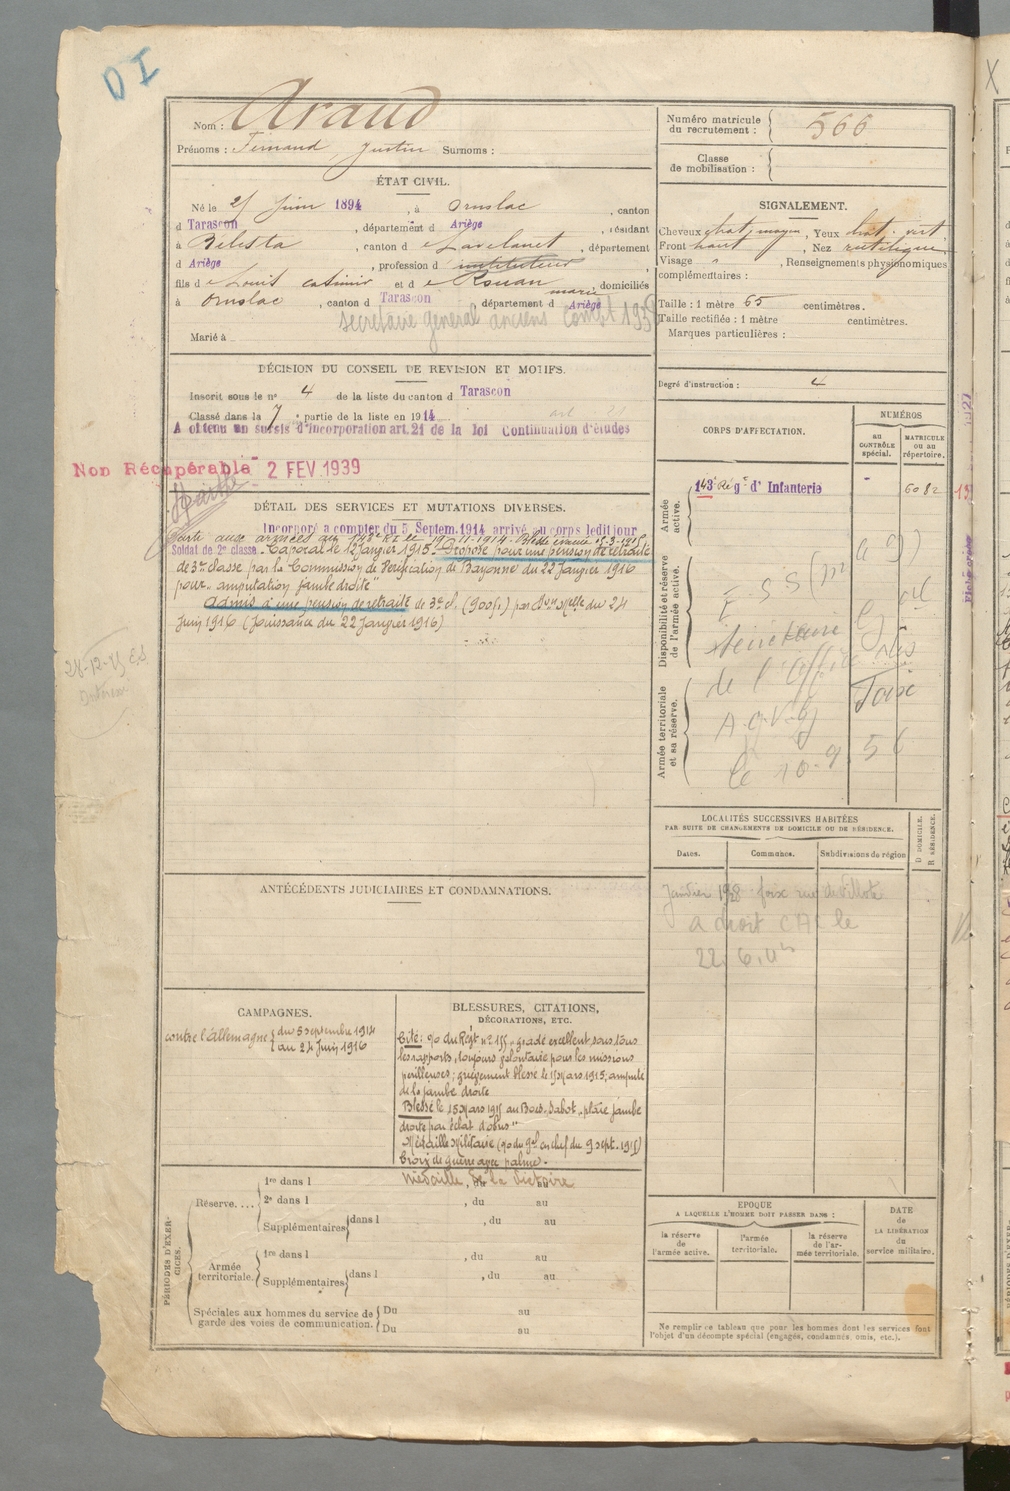 DI
Nom : Araud
Prénoms : Fernand Justin Surnoms :
Numéro matricule du recrutement : 566
Classe de mobilisation :
ÉTAT CIVIL.
Né le Juin 1894, à Ornolac, canton
d Tarascon, département d Ariège, résidant
à Bélesta, canton d e Lavelanet, département
d Ariège, profession d instituteur
fils d e Louis Casimir et d e Rouan Marie, domiciliés
à Ornolac, canton d Tarascon, département d Ariège
secrétaire général anciens combat
Marié à
SIGNALEMENT.
Cheveux chat. moyen, Yeux
Front haut, Nez rectiligne
Visage " , Renseignements physionomiques
complémentaires :
Taille : 1 mètre 65 centimètres.
Taille rectifiée : 1 mètre centimètres.
Marques particulières :
Degré d'instruction : 4
DÉCISION DU CONSEIL DE REVISION ET MOTIFS.
Inscrit sous le nº 4 de la liste du canton d Tarascon
Classé dans la 7 e partie de la liste en 1914
A obtenu un sursis d'incorporation art. 21 de la loi Continuation d'études
Non Récupérable - 2 FEV. 1939
DÉTAIL DES SERVICES ET MUTATIONS DIVERSES.
Incorporé a compter du 5 Septem. 1914 arrivé au corps ledit jour
Parti aux armées au 143e RI le 11-1914. Blessé évacué 15-3-1915.
Soldat de 2e classe. Caporal le 12 Janvier 1915. Proposé pour une pension de retraite
de 3e classe par la Commission de Vérification de Bayonne du 22 Janvier 1916
pour "amputation jambe droite"
Admis à une pension de retraite de 3e cl. (900 f.) par du 24
Juin 1916 (Jouissance du 22 Janvier 1916)
28-12-
CORPS D'AFFECTATION.
NUMÉROS
au CONTRÔLE spécial.
MATRICULE ou au répertoire.
Armée active.
143e Régt d'Infanterie - 6082
Disponibilité et réserve de l'armée active.
secrétaire
de l'Office
Armée territoriale et sa réserve.
le 10-9
LOCALITÉS SUCCESSIVES HABITÉES
PAR SUITE DE CHANGEMENTS DE DOMICILE OU DE RÉSIDENCE.
Dates. Communes. Subdivisions de région
D DOMICILE. R RÉSIDENCE.
Janvier 1928 foix rue de Villote
a droit le
22. 6.
ANTÉCÉDENTS JUDICIAIRES ET CONDAMNATIONS.
CAMPAGNES.
contre l'allemagne { du 5 septembre 1914
au 24 Juin 1916
BLESSURES, CITATIONS,
DÉCORATIONS, ETC.
Cité : o/o du Régt nº 155 "gradé excellent sous tous
les rapports, toujours volontaire pour les missions
périlleuses ; grièvement blessé le 15 Mars 1915 ; amputé
de la jambe droite
Blessé le 15 Mars 1915 au Bois Sabot "plaie jambe
droite par éclat d'obus"
Médaille Militaire (o/o du gal en chef du 9 sept. 1915)
Croix de guerre avec palme.
Médaille de la Victoire
PÉRIODES D'EXERCICES.
Réserve....
1re dans l
2e dans l , du au
Supplémentaires dans l , du au
Armée territoriale.
1re dans l , du au
Supplémentaires dans l , du au
Spéciales aux hommes du service de garde des voies de communication.
Du au
Du au
EPOQUE
A LAQUELLE L'HOMME DOIT PASSER DANS :
la réserve de l'armée active.
l'armée territoriale.
la réserve de l'armée territoriale.
DATE de LA LIBÉRATION du service militaire.
Ne remplir ce tableau que pour les hommes dont les services font
l'objet d'un décompte spécial (engagés, condamnés, omis, etc.).